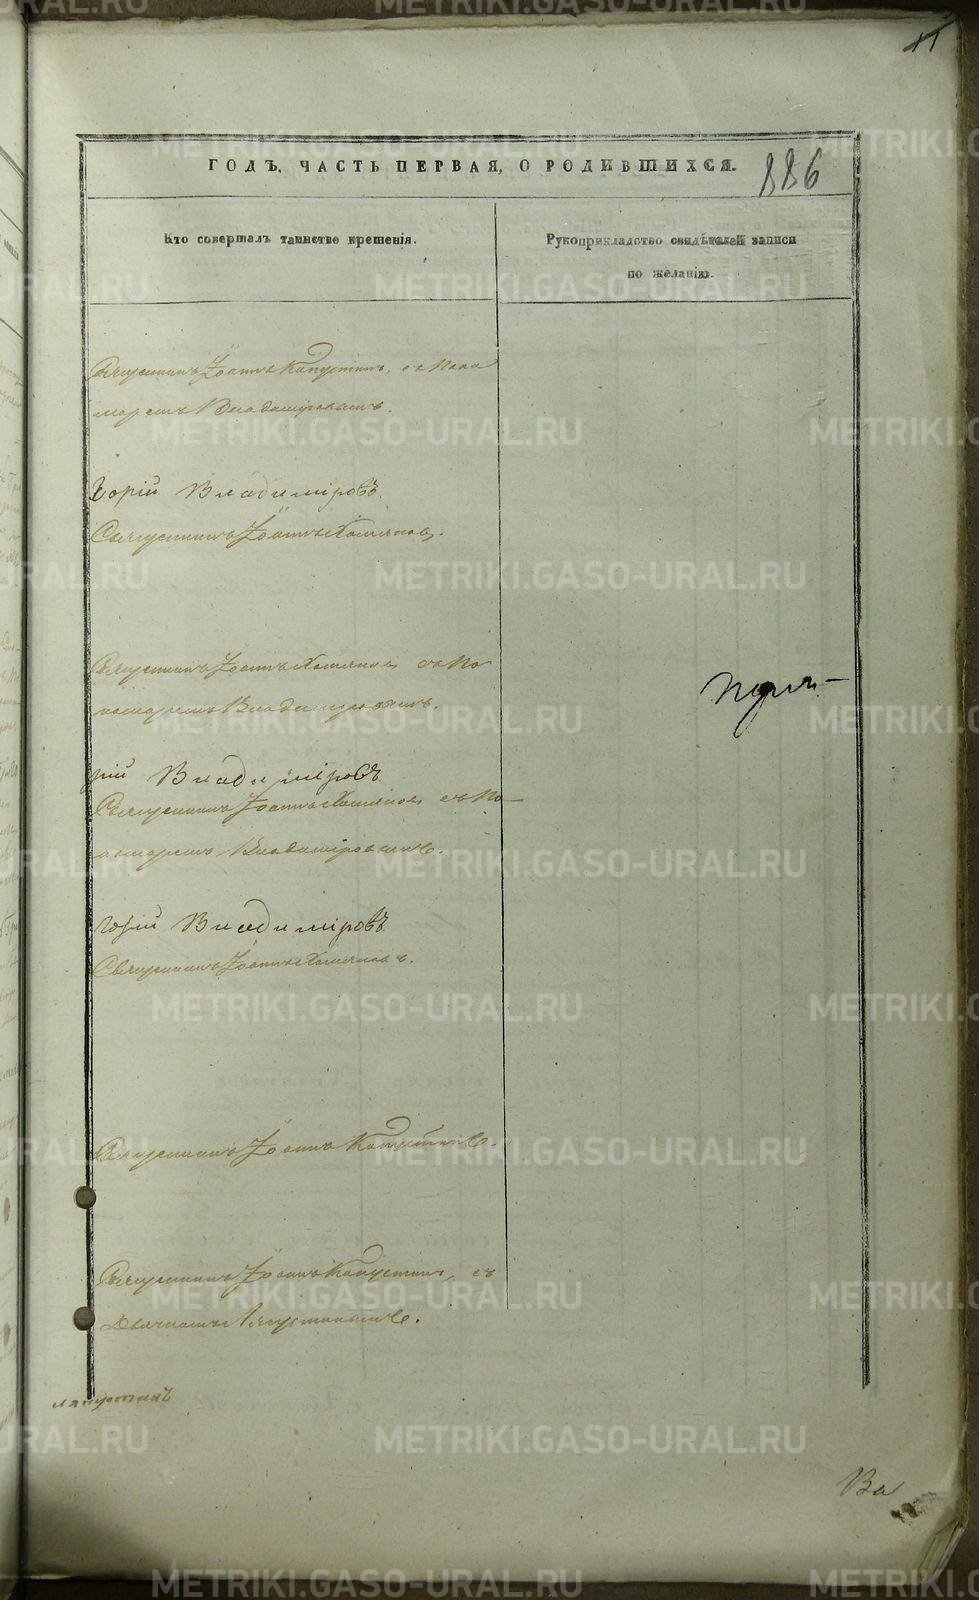 11
ГОДЪ, ЧАСТЬ ПЕРВАЯ, О РОДИВШИХСЯ.
886
Кто совершалъ таинство крещенія.
Рукоприкладство свидѣтелей записи
по желанію.
Священникъ Іоаннъ Капустинъ, съ Поно
маремъ Владиміровымъ.
горій Владиміровъ.
Священникъ Іоаннъ Хомяковъ.
Священникъ Іоаннъ Хомяковъ съ По
номаремъ Владиміровымъ.
рій Владиміровъ
Священникъ Іоаннъ Хомяковъ съ По
номаремъ Владиміровымъ.
горій Владиміровъ
Священникъ Іоаннъ Хомяковъ.
Священникъ Іоаннъ Капустинъ.
Священникъ Іоаннъ Капустинъ, съ
Дьячкомъ Ляпустинымъ.
ляпустинъ
Ва
METRIKI.GASO-URAL.RU